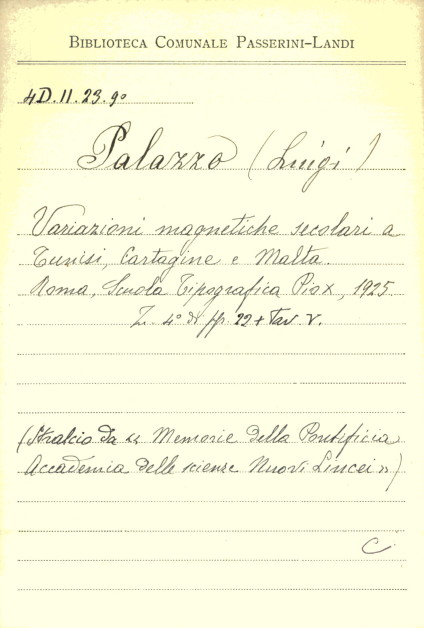 BIBLIOTECA COMUNALE PASSERINI-LANDI
4D.II.23.9°
Palazzo (Luigi)
Variazioni magnetiche secolari a
Tunisi, Cartagine e Malta.
Roma, Scuola Tipografica Pio X, 1925
4° di pp. 22 + Tav. V.
(Stralcio da << Memorie della Pontificia
Accademia delle scienze Nuovi Lincei >>)
C